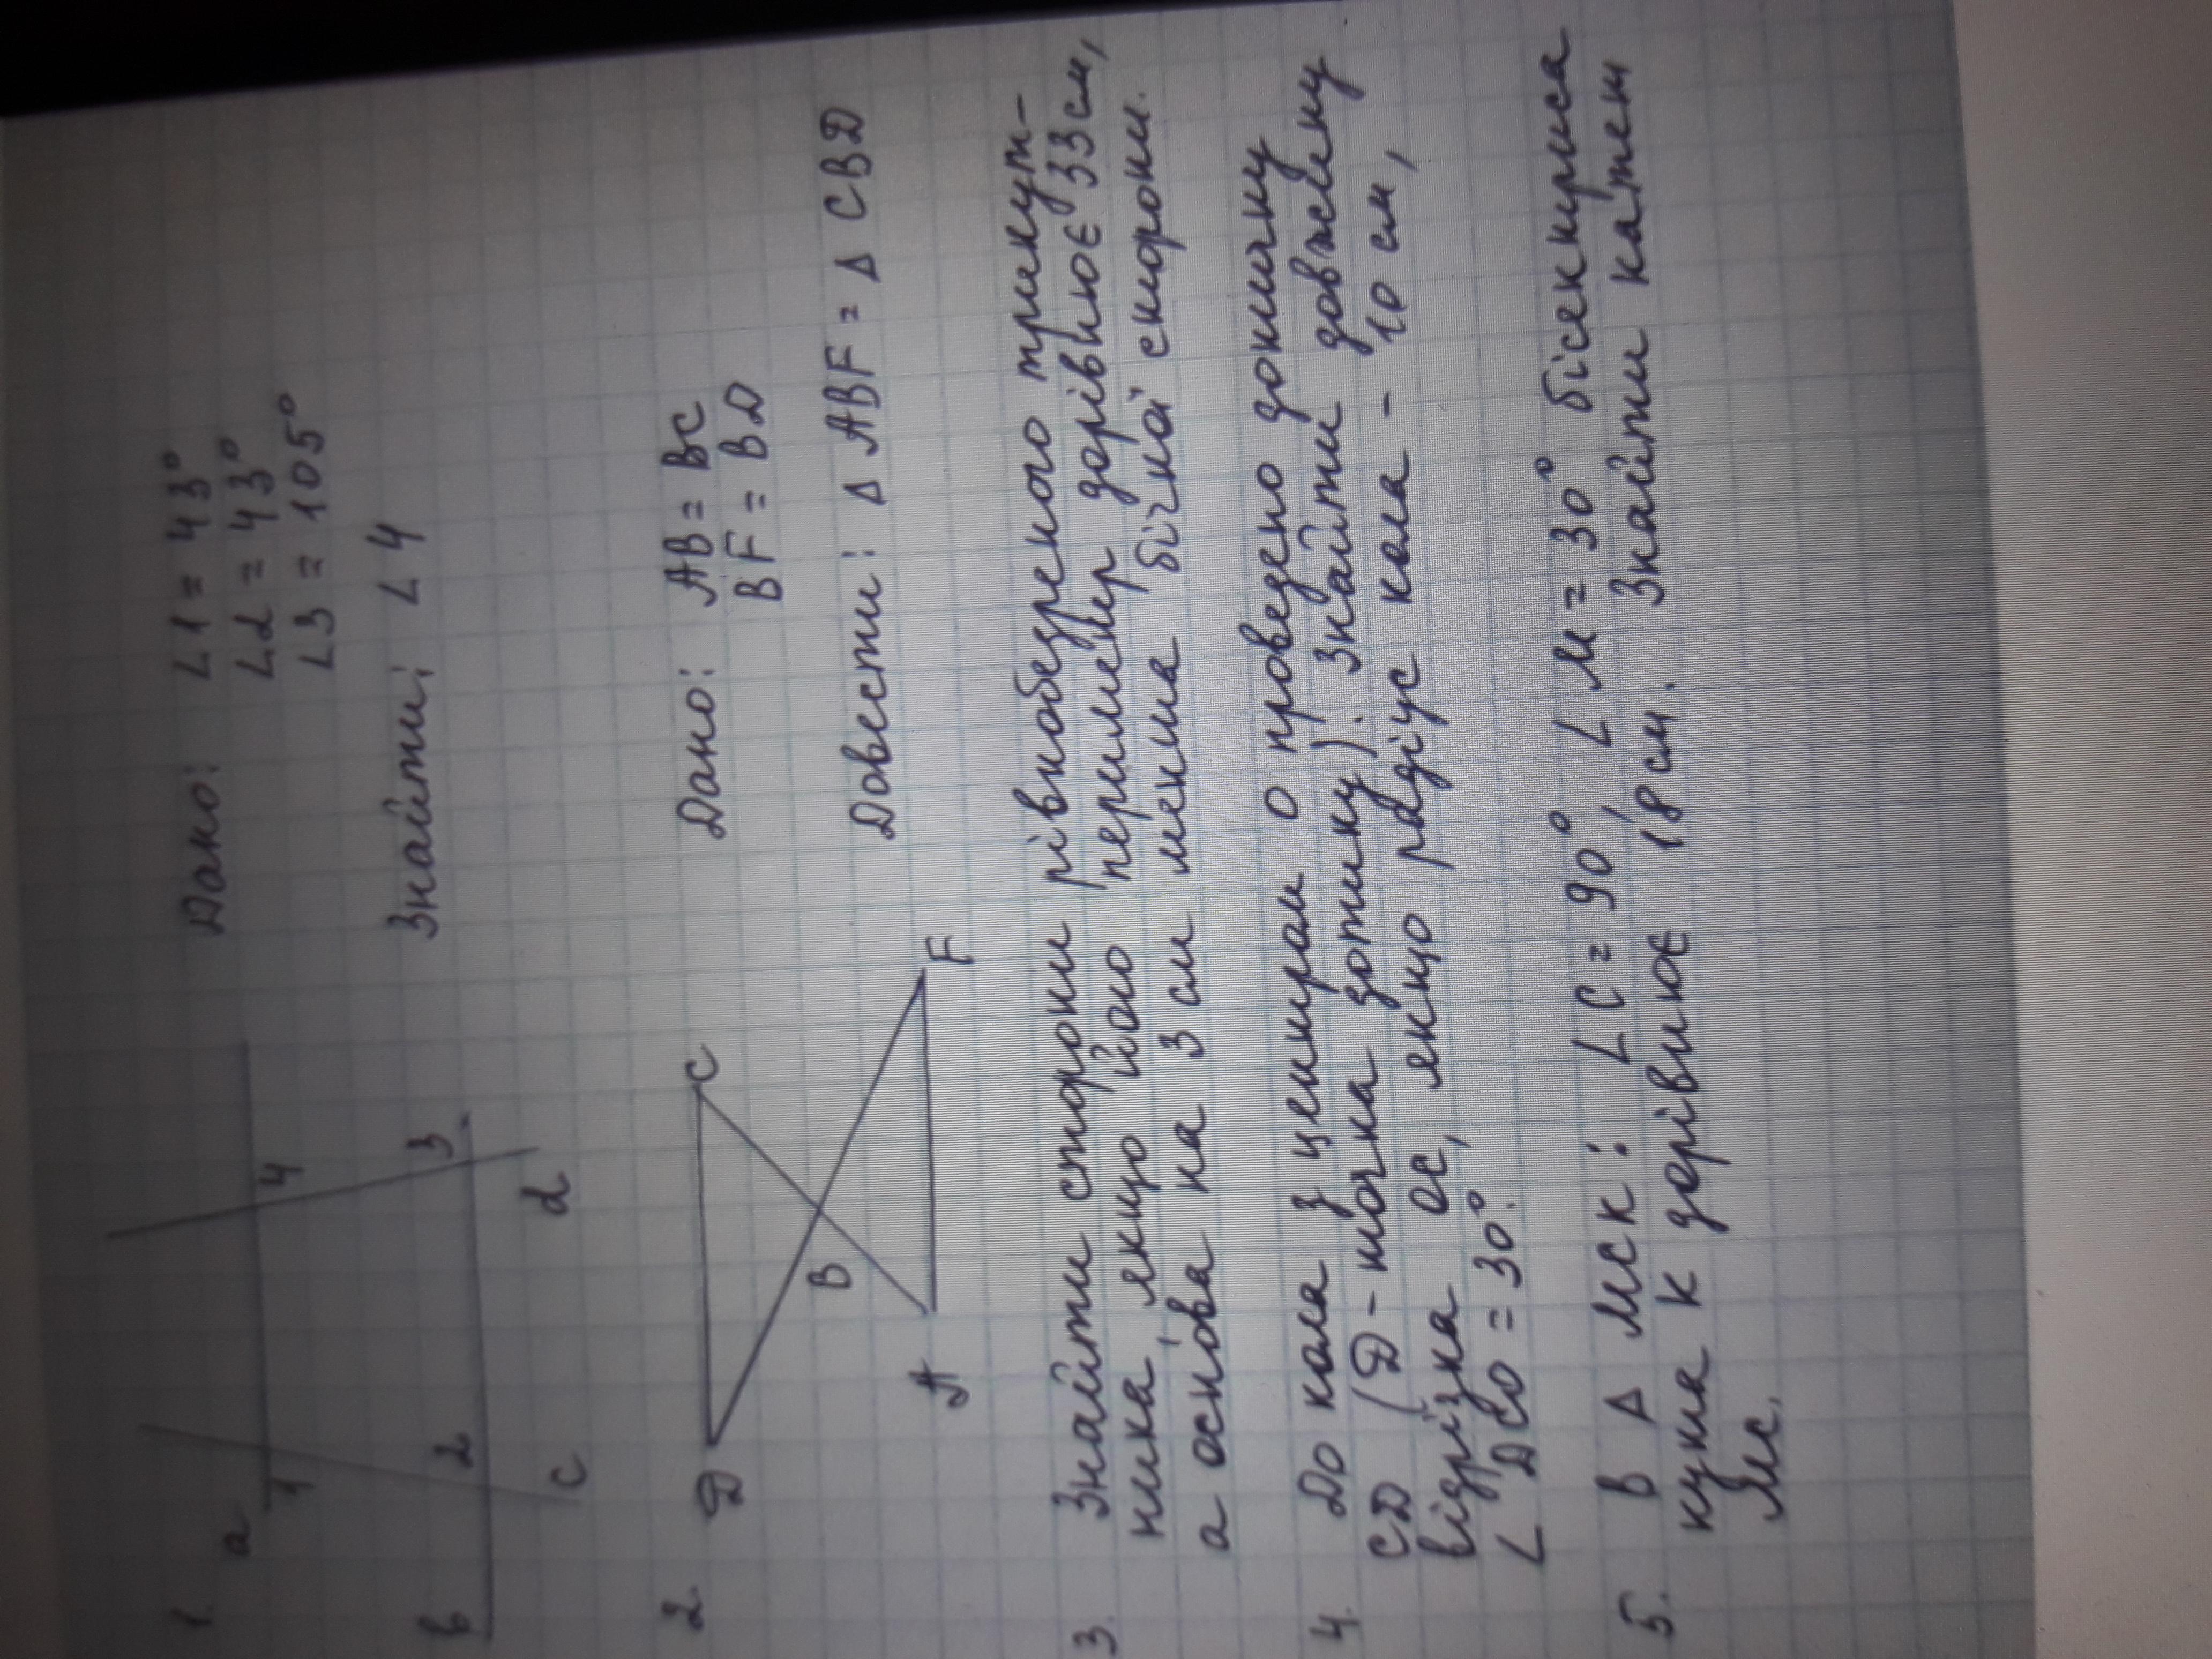 1.
а
1
4
в
2
3
с
d
Дано: ∠1 = 43°
∠2 = 43°
∠3 = 105°
Знайти: ∠4
2.
D
C
B
A
F
Дано: AB = BC
BF = BD
Довести: Δ ABF = Δ CBD
3. Знайти сторони рівнобедреного трикут-
ника, якщо його периметр дорівнює 33 см,
а основа на 3 см менша бічної сторони.
4. До кола з центром О проведено дотичну
CD (D - точка дотику). Знайти довжину
відрізка ОС, якщо радіус кола - 10 см,
∠ DCO = 30°.
5. В Δ МСК: ∠C = 90°, ∠ М = 30° бісектриса
кута К дорівнює 18 см. Знайти катет
МС.